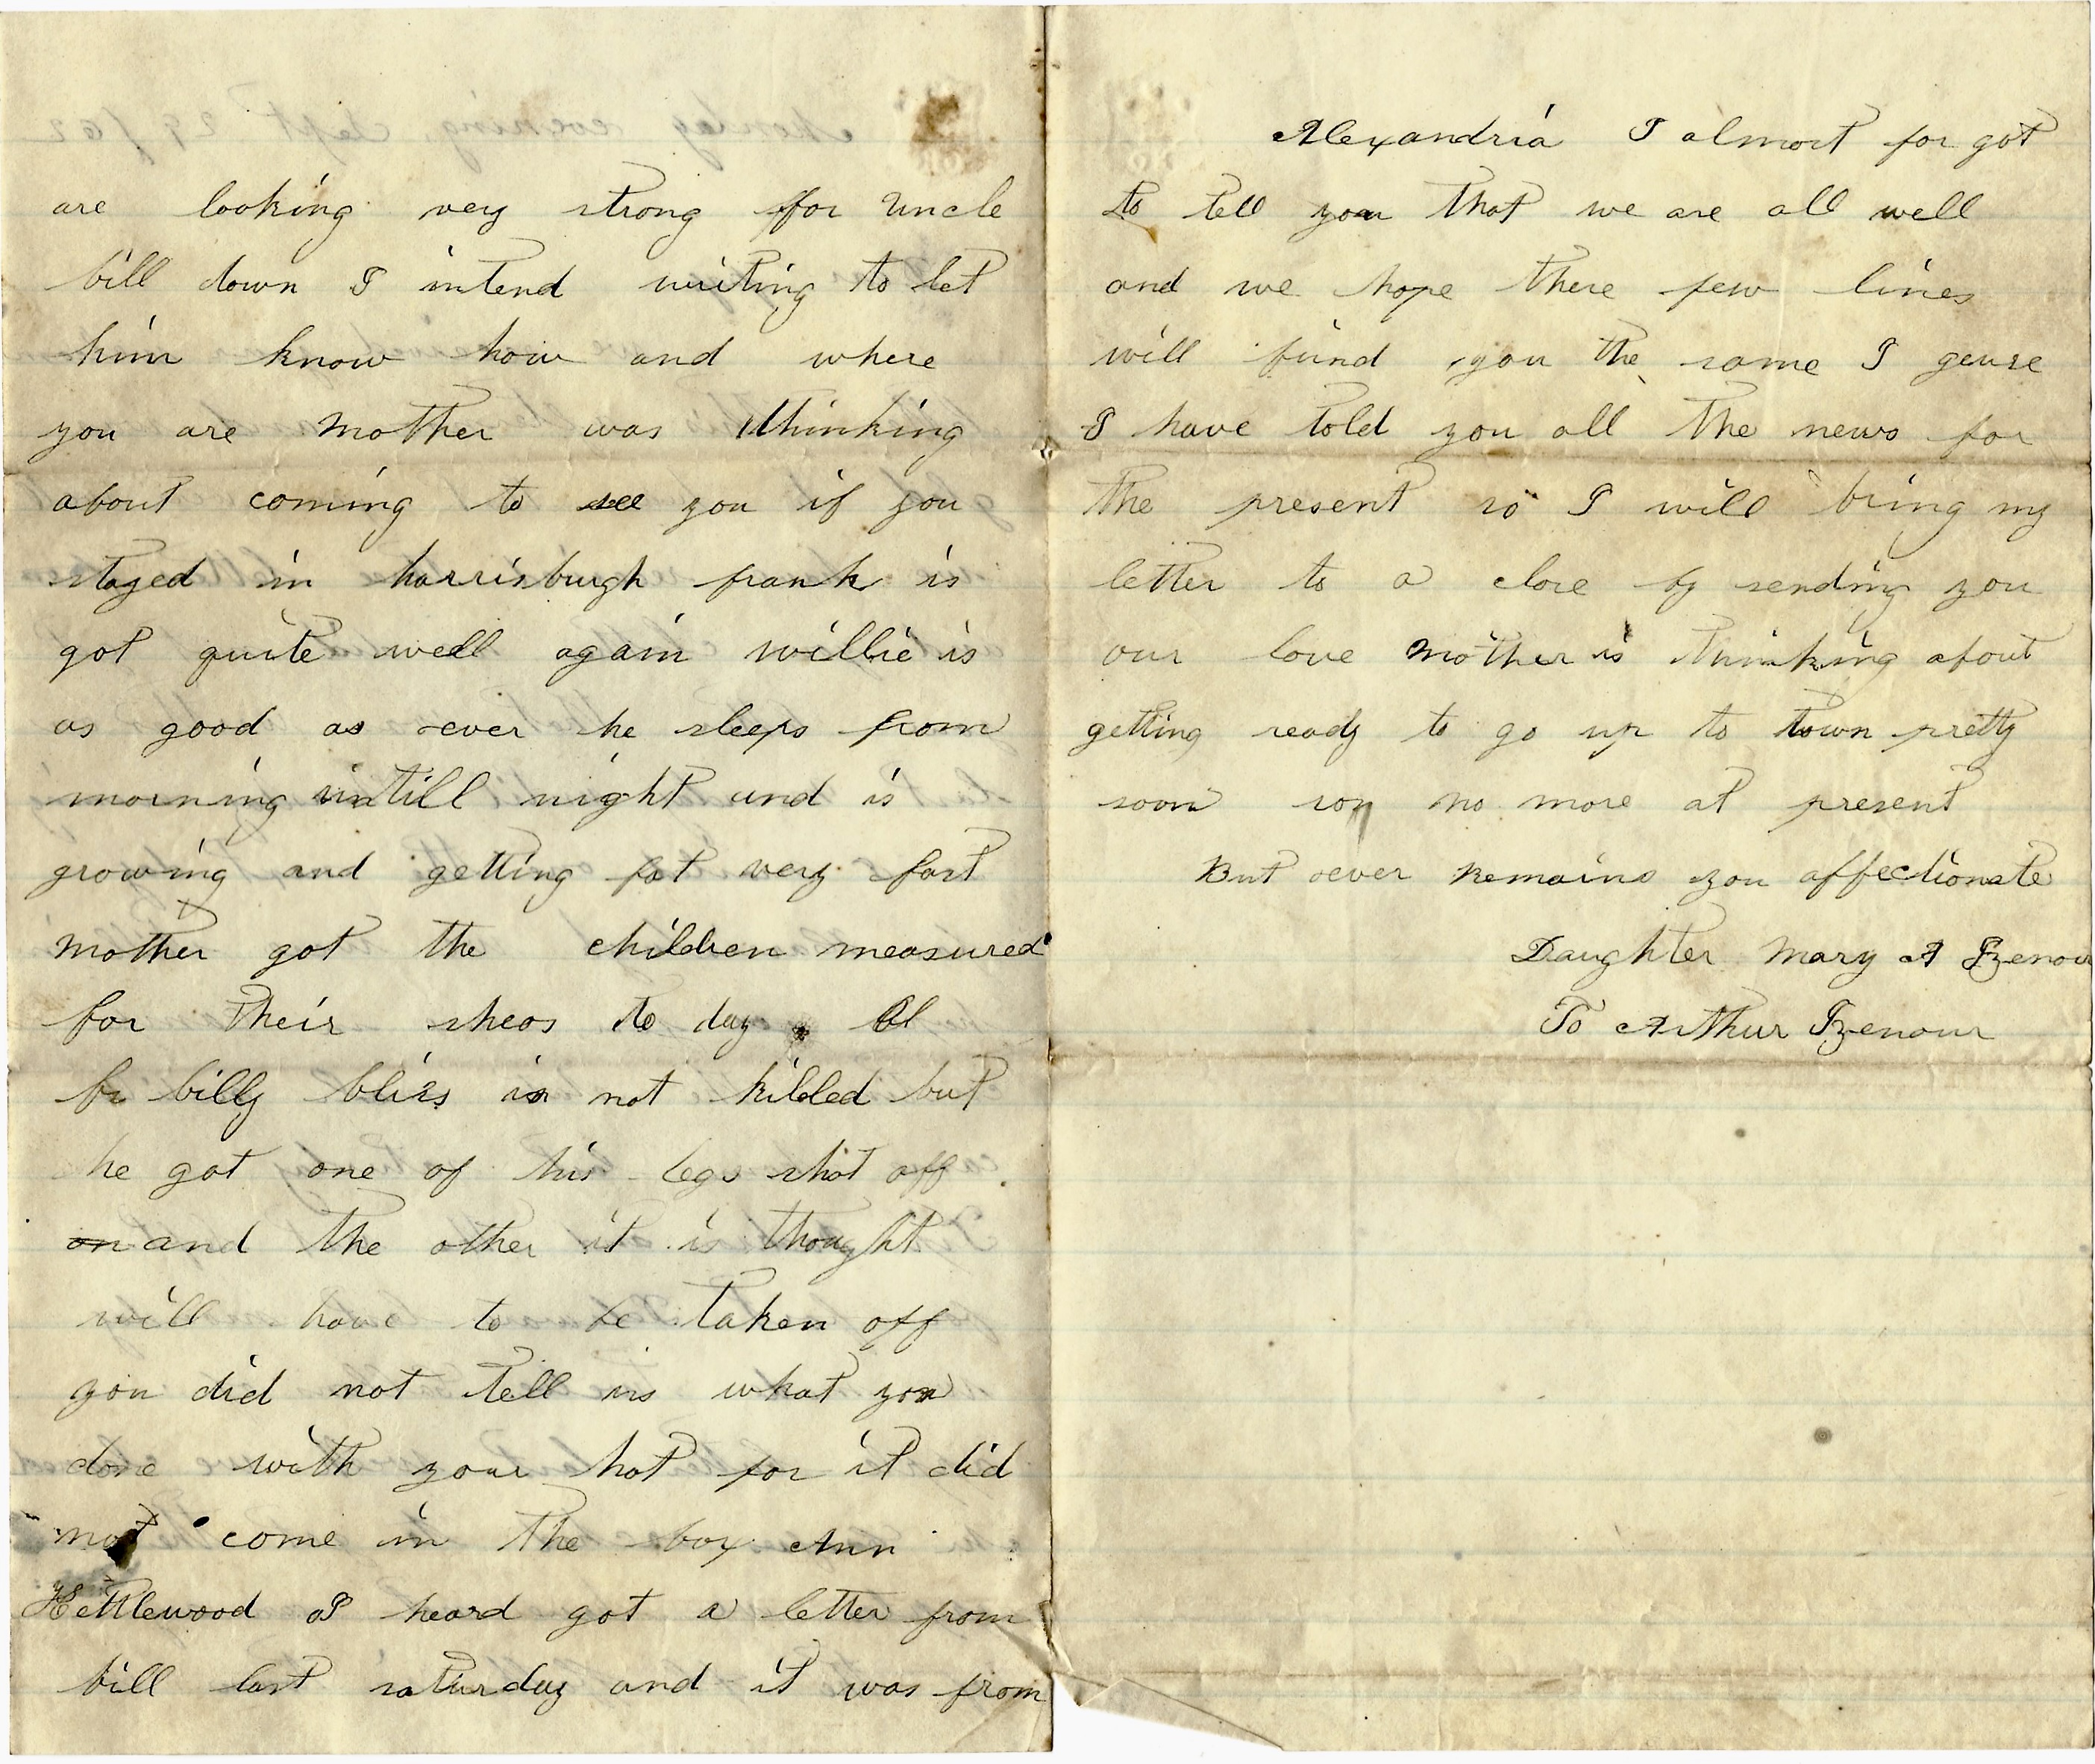 are looking very strong for Uncle
bill down I intend writing to let
him know how and where
you are mother was thinking
about coming to see you if you
stayed in harrisburgh frank is
got quite well again willie is
as good as ever he sleeps from
morning untill night and is
growing and getting fat very fast
mother got the children measured
for their sheos to day
billy bliss is not killed but
he got one of his legs shot off
on and the other it is thought
will have to be taken off
you did not tell us what you
done with your hat for it did
not come in the box Ann
Kettlewood I heard got a letter from
bill last saturday and it was from
Alexandria I almost for got
to tell you that we are all well
and we hope these few lines
will find you the same I geuse
I have told you all the news for
the present so I will bring my
letter to a close by sending you
our love mother is thinking about
getting ready to go up to town pretty
soon no more at present
But ever Remains you affectionate
Daughter Mary A Izenour
To Arthur Izenour